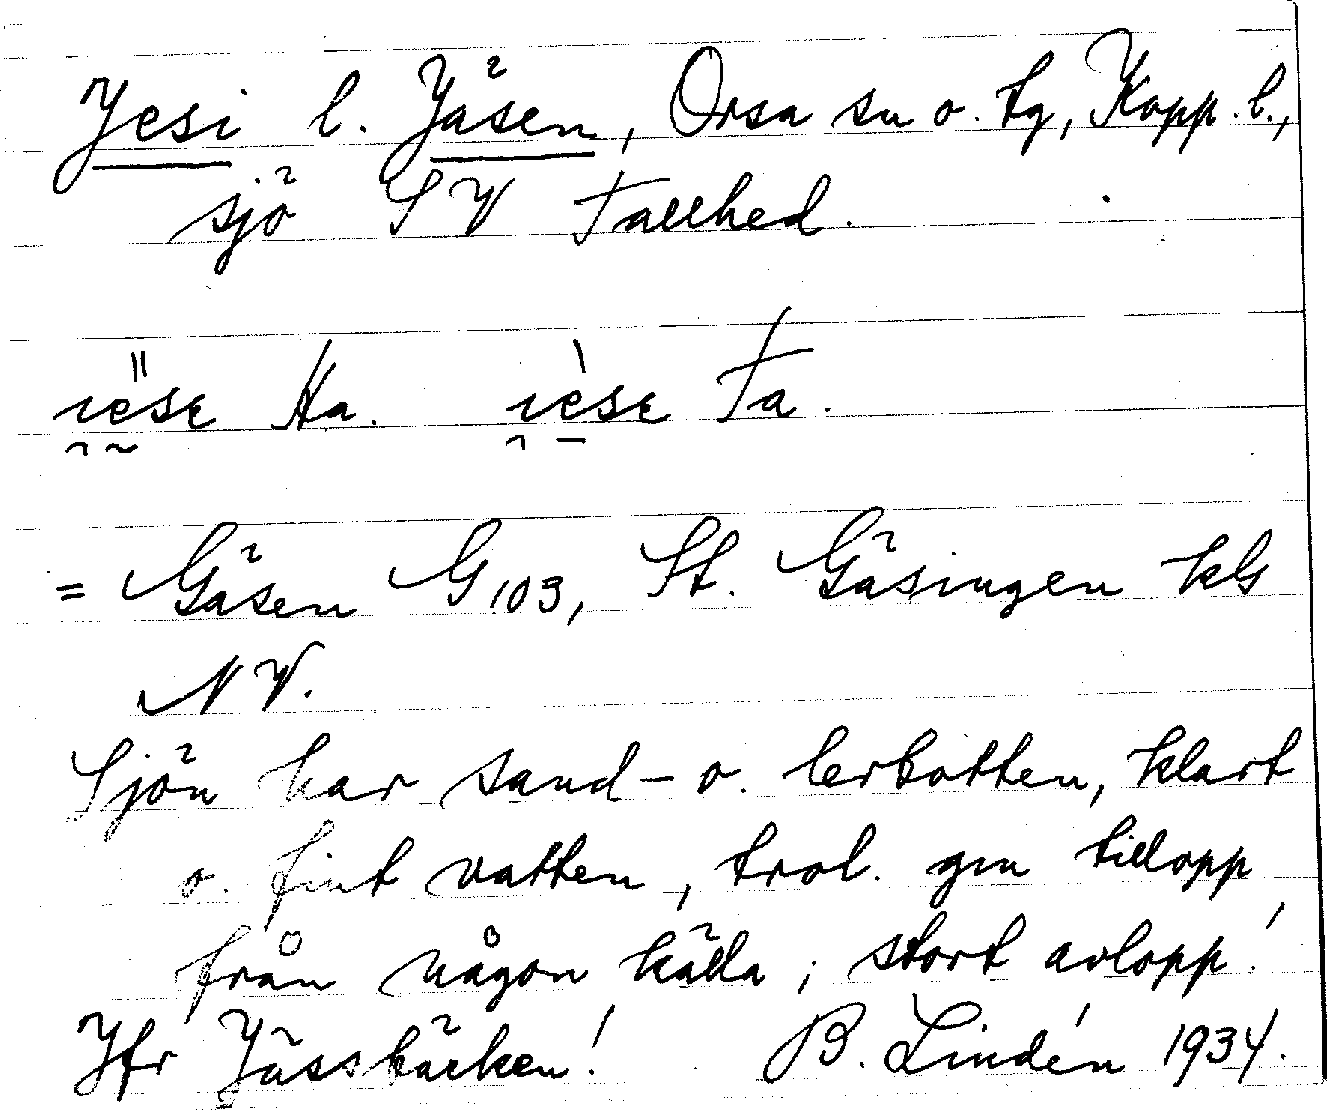 Jesi l. Jäsen, Orsa sn o. tg, Kopp. l.,
sjö SV Tallhed.
Ha. Ta.
= Gäsen G 103, St. Gäsingen kbl
NV.
Sjön har sand- o. lerbotten, klart
o. fint vatten, trol. gm tillopp
från någon källa; stort avlopp!
Jfr Jässbäcken! B. Lindén 1934.